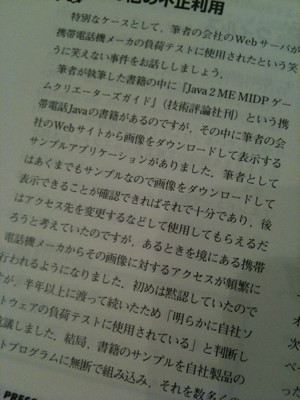 他の不正利用
特別なケースとして，筆者の会社のWebサーバが
携帯電話機メーカの負荷テストに使用されたという笑
うに笑えない事件をお話ししましょう．
筆者が執筆した書籍の中に『Java 2 ME MIDP ゲー
ムクリエーターズガイド』(技術評論社刊) という携
帯電話Javaの書籍があるのですが，その中に筆者の会
社のWebサイトから画像をダウンロードして表示する
サンプルアプリケーションがありました．筆者として
はあくまでもサンプルなので画像をダウンロードして
表示できることが確認できればそれで十分であり，後
はアクセス先を変更するなどして使用してもらえるだ
ろうと考えていたのですが，あるときを境にある携帯
電話機メーカからその画像に対するアクセスが頻繁に
行われるようになりました．初めは黙認していたので
が，半年以上に渡って続いたため「明らかに自社ソ
トウェアの負荷テストに使用されている」と判断し
議しました．結局，書籍のサンプルを自社製品の
トプログラムに無断で組み込み，それを数多くの
PRESS
オ
次
ペ